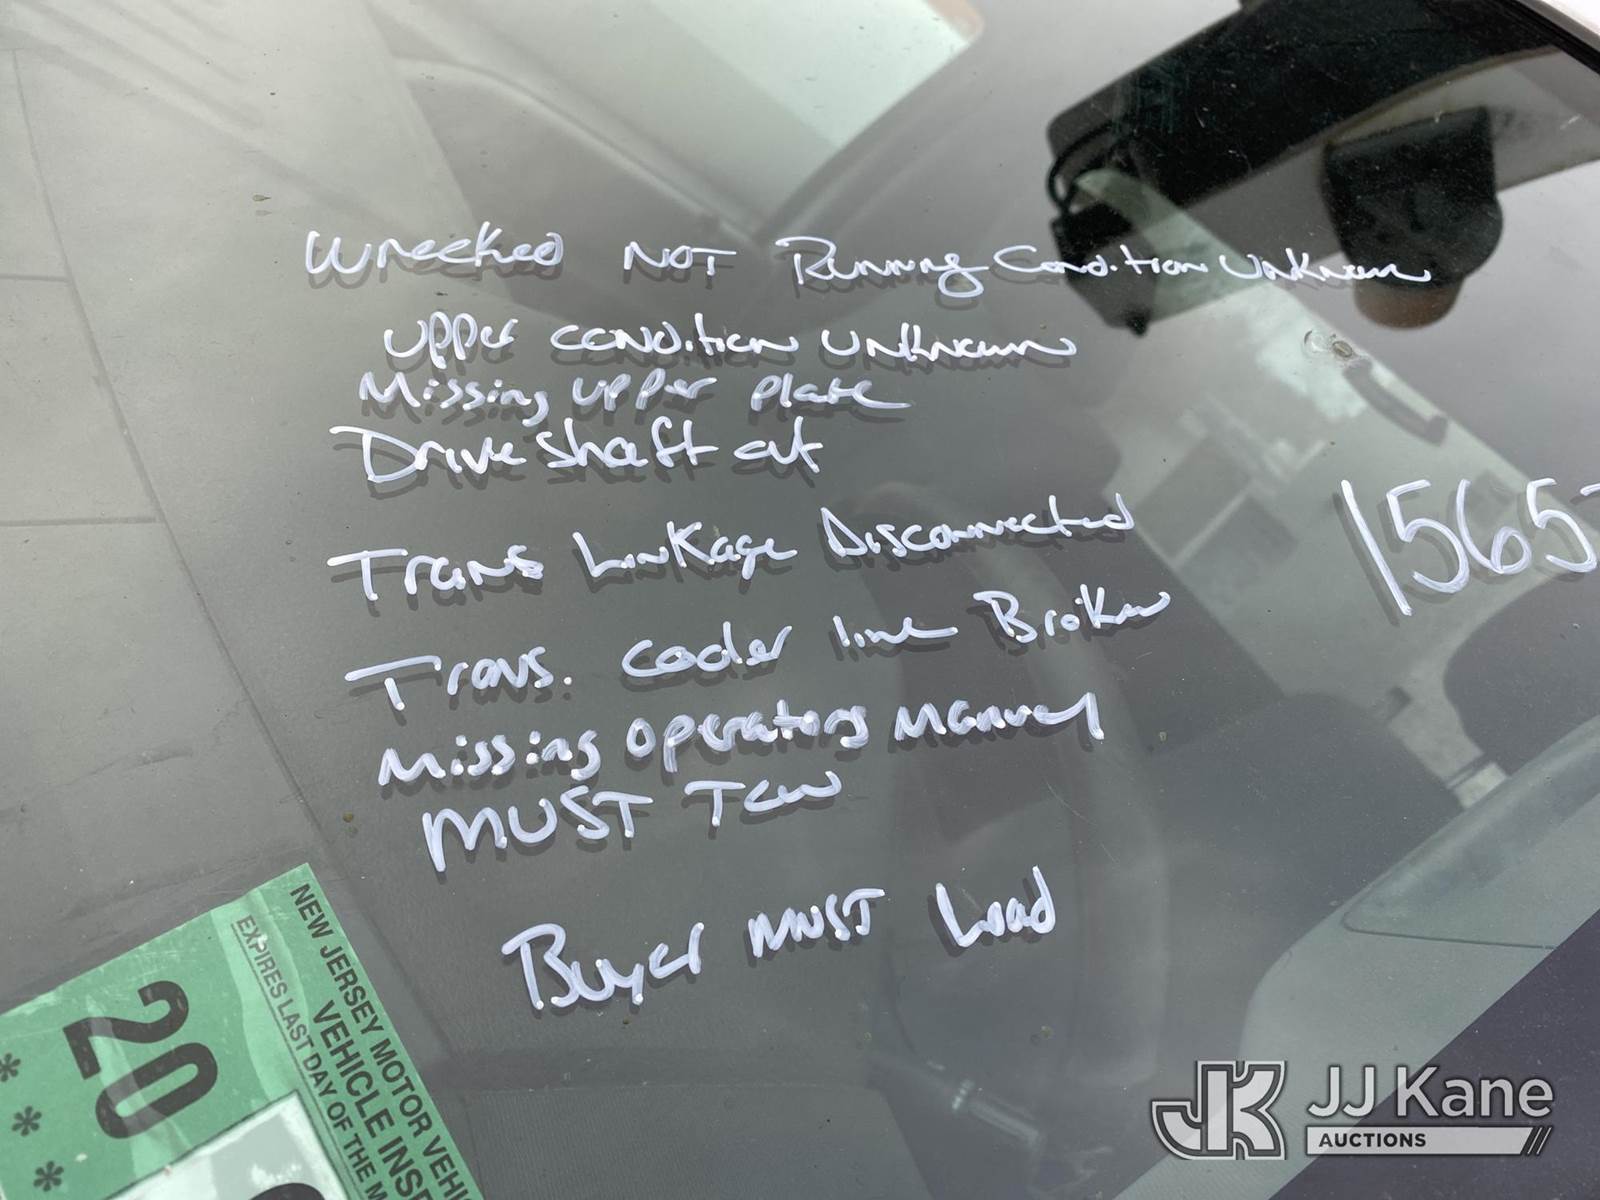 Wrecked NOT Running Condition Unknown
Upper condition unknown
Missing upper plate
Drive shaft cut
1565
Trans Linkage Disconnected
Trans. cooler line Broken
Missing operators manuel
MUST Tow
Buyer MUST Load
NEW JERSEY MOTOR VEHI
VEHICLE INSPE
EXPIRES LAST DAY OF THE M
20
* * *
JK JJ Kane
AUCTIONS